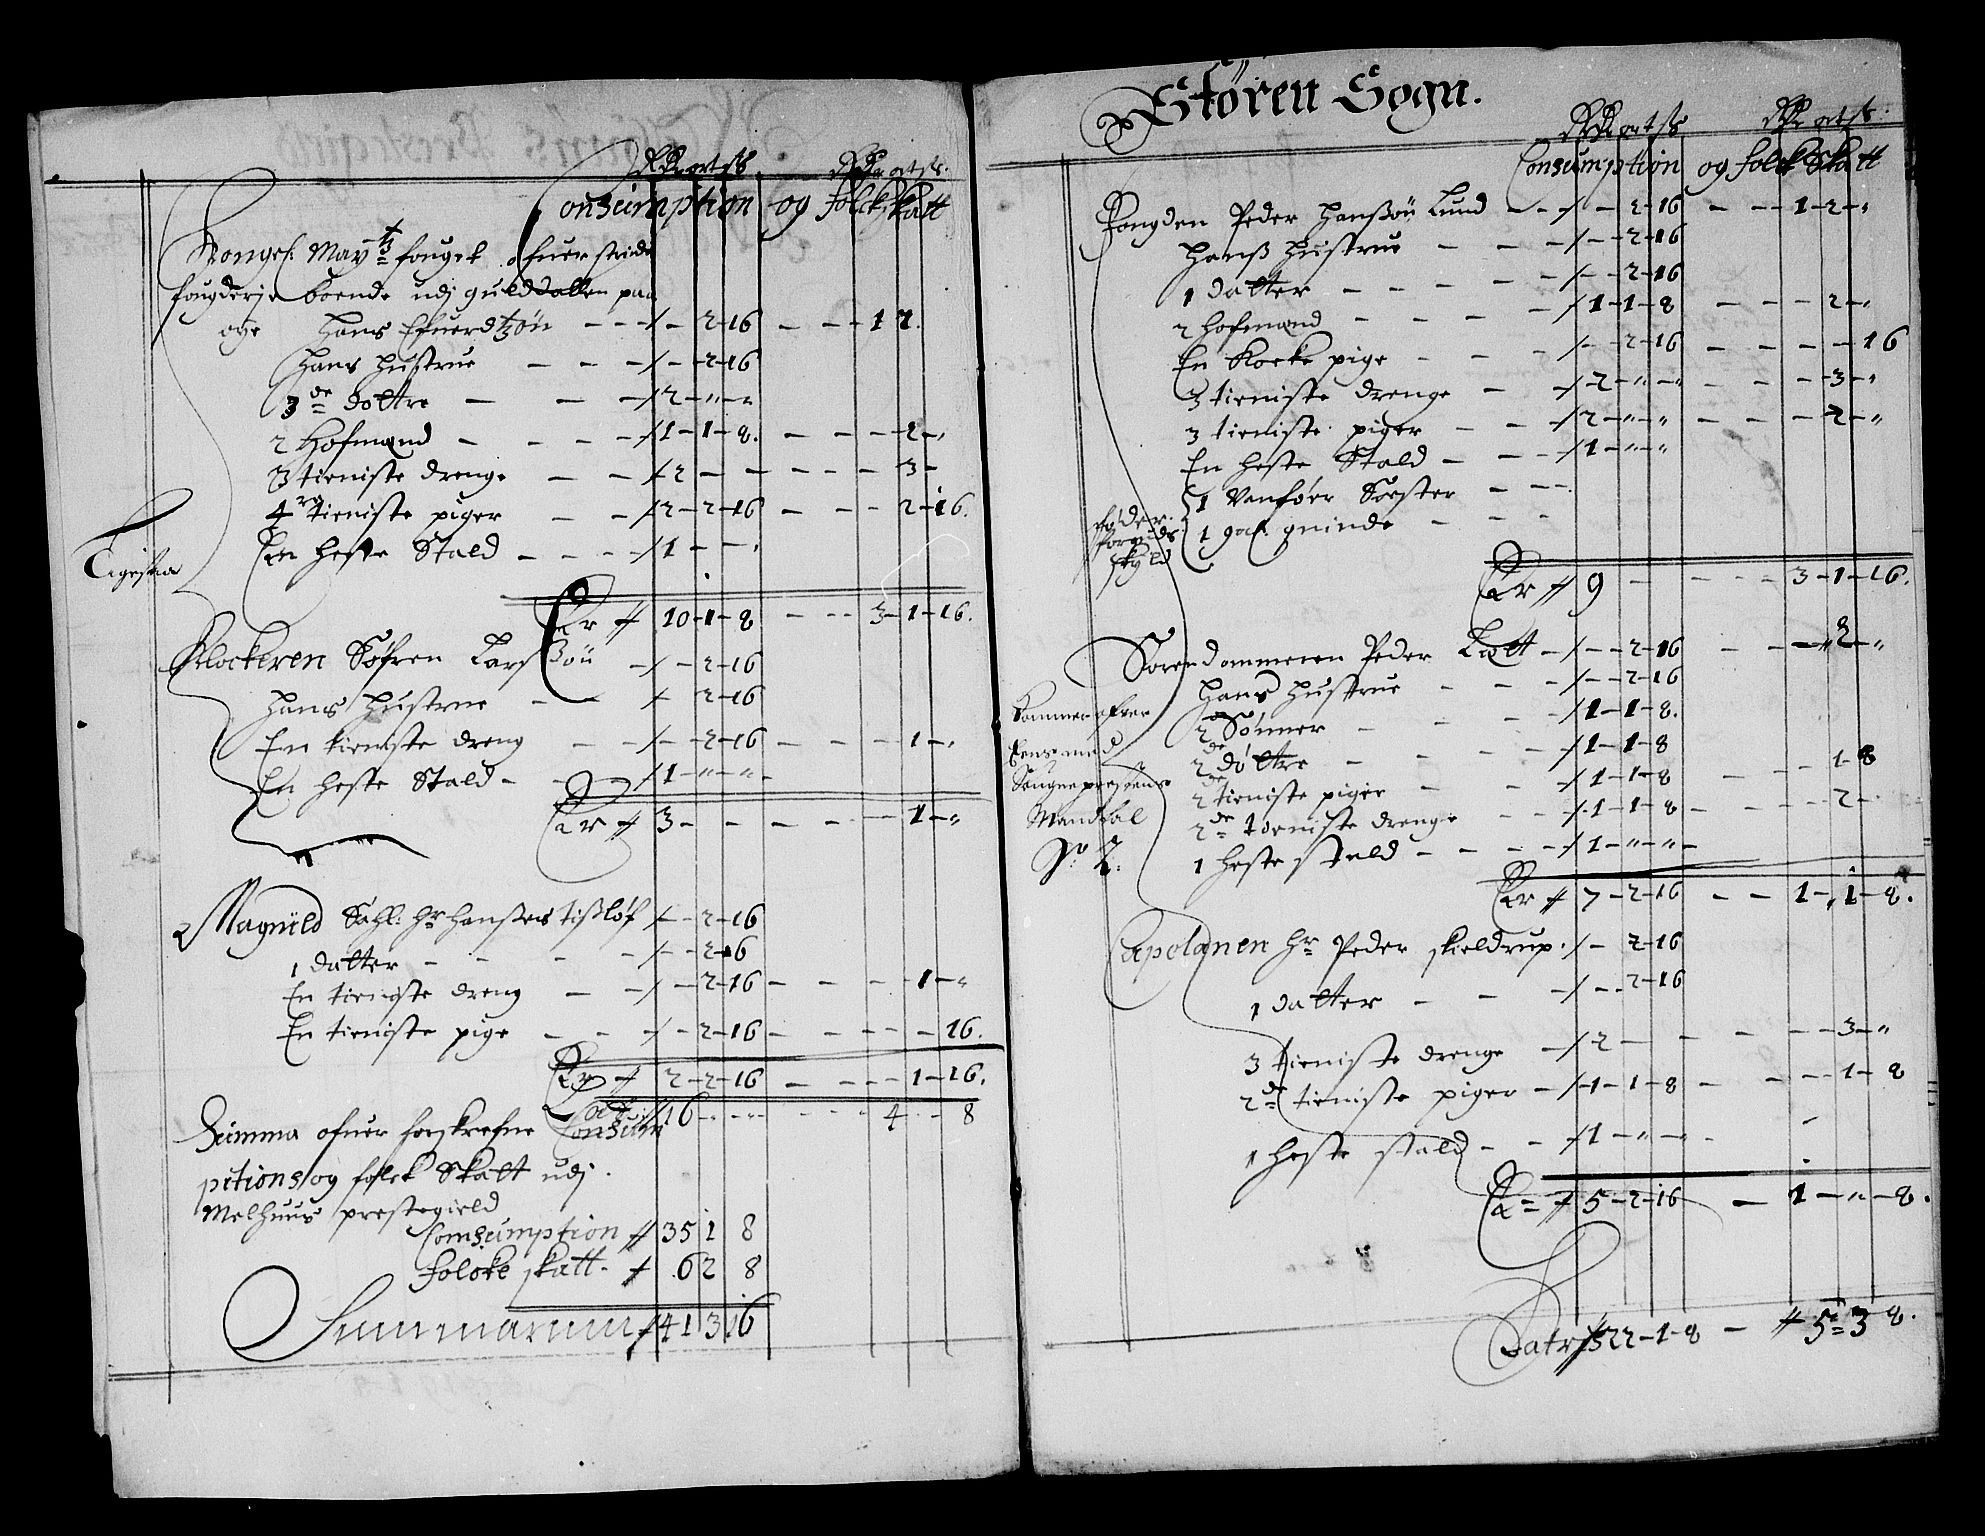 Rdr ort s Rdr ort s.
Consumption og folckskatt
Kongel: May: fouget ofuer strinde
fougderje boende udj gulddallen paa
øye Hans Efuerdtzøn - - - / - 2-16 - - - 1 2.
Hans Hustrue - - - / - - 2-16
3 de døttre - - - / 2 - " - "
2 Hofmænd - - - - / 1 - 1 - 8. - - - 2 - "
3 tieniste drenge - - / 2 - - - - - - 3 -
4 re tieniste piger - - / 2 - 2-16 - - - 2-16.
En heste Stald - - - - / 1 - - .
Er 10-1-8 - - - 3-1-16.
Klockeren Søfren Larsßøn - / - 2-16
Hans Hustrue - / 2-16
En tieniste dreng - - / - 2-16 - - - 1 - "
En heste Stald - - / 1 - " - " -
Er 3 - - - - - - 1 - "
Magnild Sahl: Hr Hanßes tißløf / - 2-16
1 datter - - - - / - - 2-16
En tieniste dreng - - / - 2-16 - - - - 1 - "
En tieniste pige - - - / - 2-16 - - - - - 16.
Er 2-2-16 - - - - 1-16.
Lat 16 - - - - - - 4 - - 8
Summa ofuer forskrefne Consum
ptions og folck Skatt udj
Melhuus prestegield
Consumption 35 1 8
folcke skatt. 6 2 8
Summarum 41 3 16
Støren Sogn.
Rdr ort s Rdr ort s.
Consumption og folck Skatt
Fougden Peder Hanßøn Lund - - / - 2-16 - - - 1-2-"
Hanß Hustrue - - - / - - 2-16
1 datter - - - - - / - - 2-16
2 Hofmænd - - - - / 1-1-8 - - - 2 - "
En Kocke pige - - - / - - 2-16 - - - - - 16
3 tieniste drenge - - / 2 - " - " - - - 3 - "
3 tieniste piger - - - / 2 - " - " - - - - 2 - "
En heste Stald - - - - / 1 - " - "
1 Vanføer Søster - - - -
føder for guds skyld
1 gal. quinde - - - -
Er 9 - - - - 3-1-16.
Sorendommeren Peder - / - - 2-16 - - - " 2 - "
Hans Hustrue - - - / - - 2-16
2 Sønner - - - - / 1-1-8.
2 de døttre - - - - / 1-1-8
2 de tieniste piger - - / 1-1-8 - - - 1-8
2 de tieniste drenge - - / 1-1-8 - - - - 2 -
1 heste stald - - - - / 1 - " - " -
Sougneprestens
Mandtal
No 2.
Er 7-2-16 - - 1-1-8.
Capelanen Hr Peder skieldrup. / - 2-16
1 datter - - - / - - 2-16
3 tieniste drenge - / 2 - - - - - 3 - "
2 de tieniste piger - / 1-1-8 - - - - 1-8
1 heste stald - - / 1 - " - " -
Er 5-2-16 - 1 - " - 8.
Latris 22-1-8 - 5 3 8.